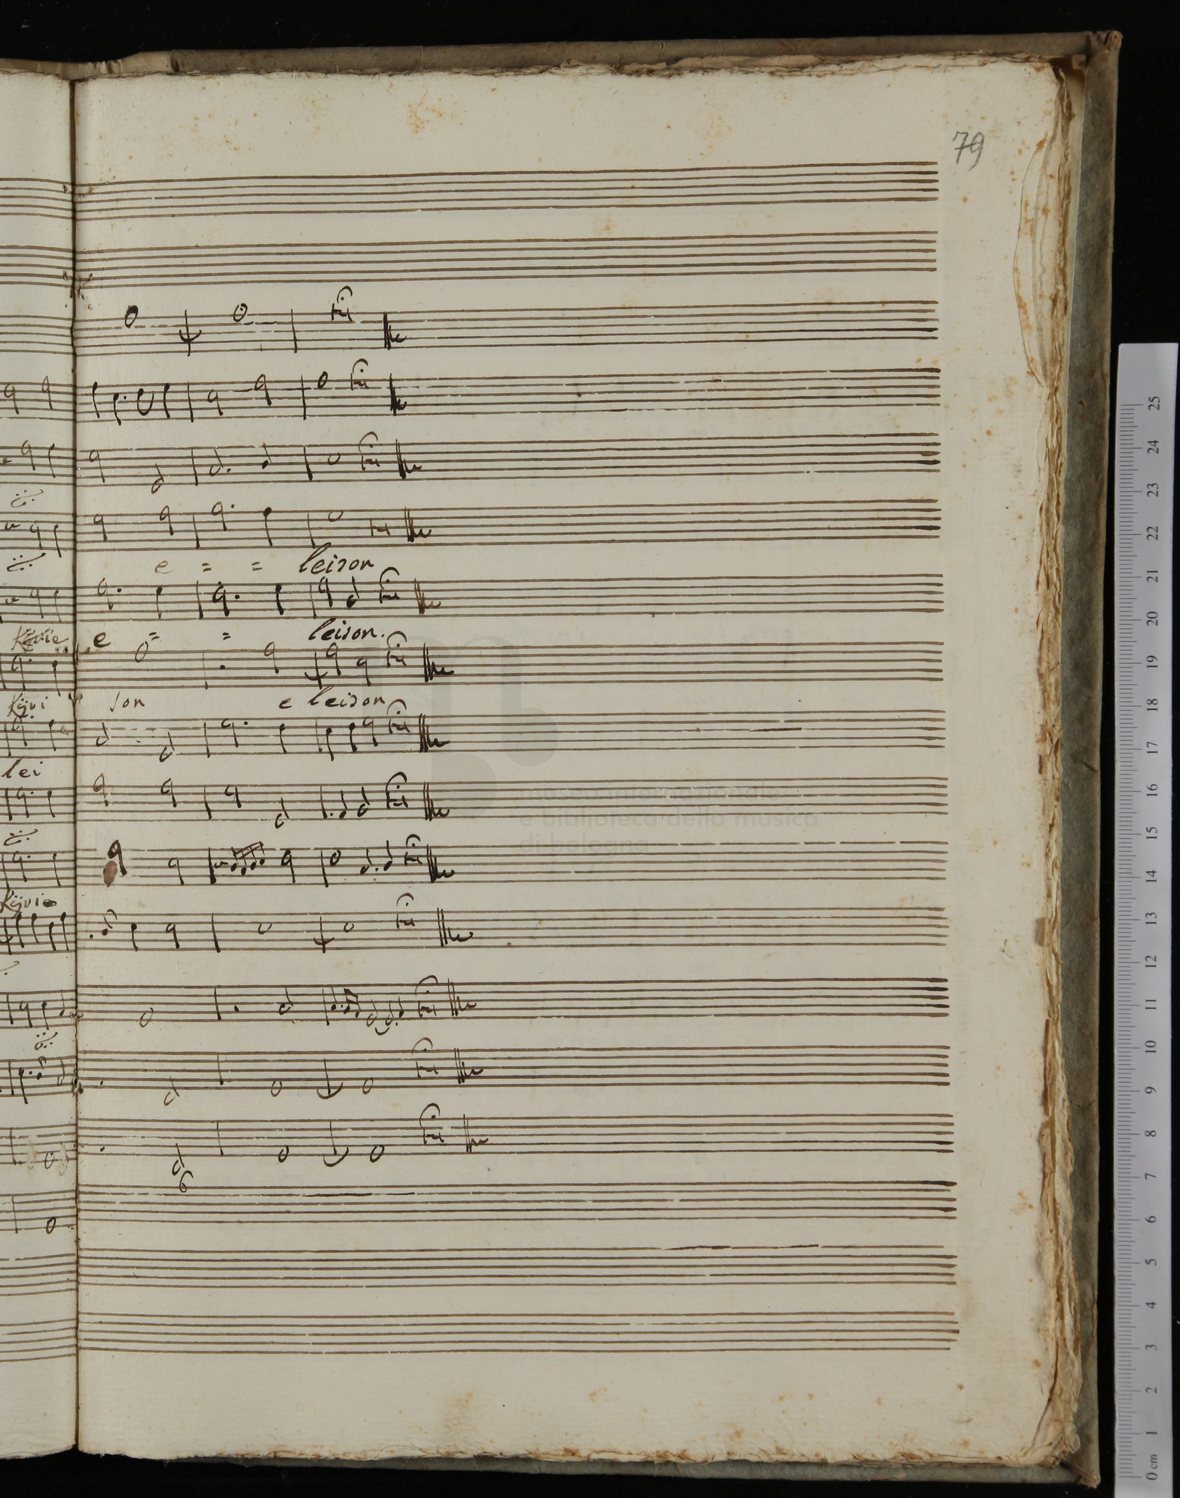 79
e = = leison
Kyrie e = = leison.
Kÿri son e leison
lei
Kÿrie
6
museo internazionale
e biblioteca della musica
di bologna
25
24
23
22
21
20
19
18
17
16
15
14
13
12
11
10
9
8
7
6
5
4
3
2
1
0 cm